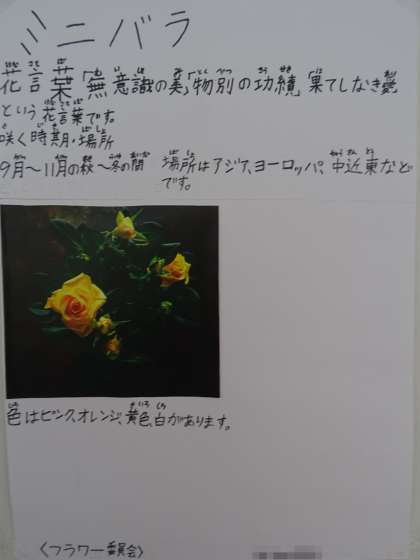 ミニバラ
花言葉「無意識の美」「物別の功績」「果てしなき愛」
という花言葉です。
咲く時期・場所
9月〜11月の秋〜冬の間 場所はアジア、ヨーロッパ、中近東など
です。
色はピンク、オレンジ、黄色、白があります。
〈フラワー委員会〉